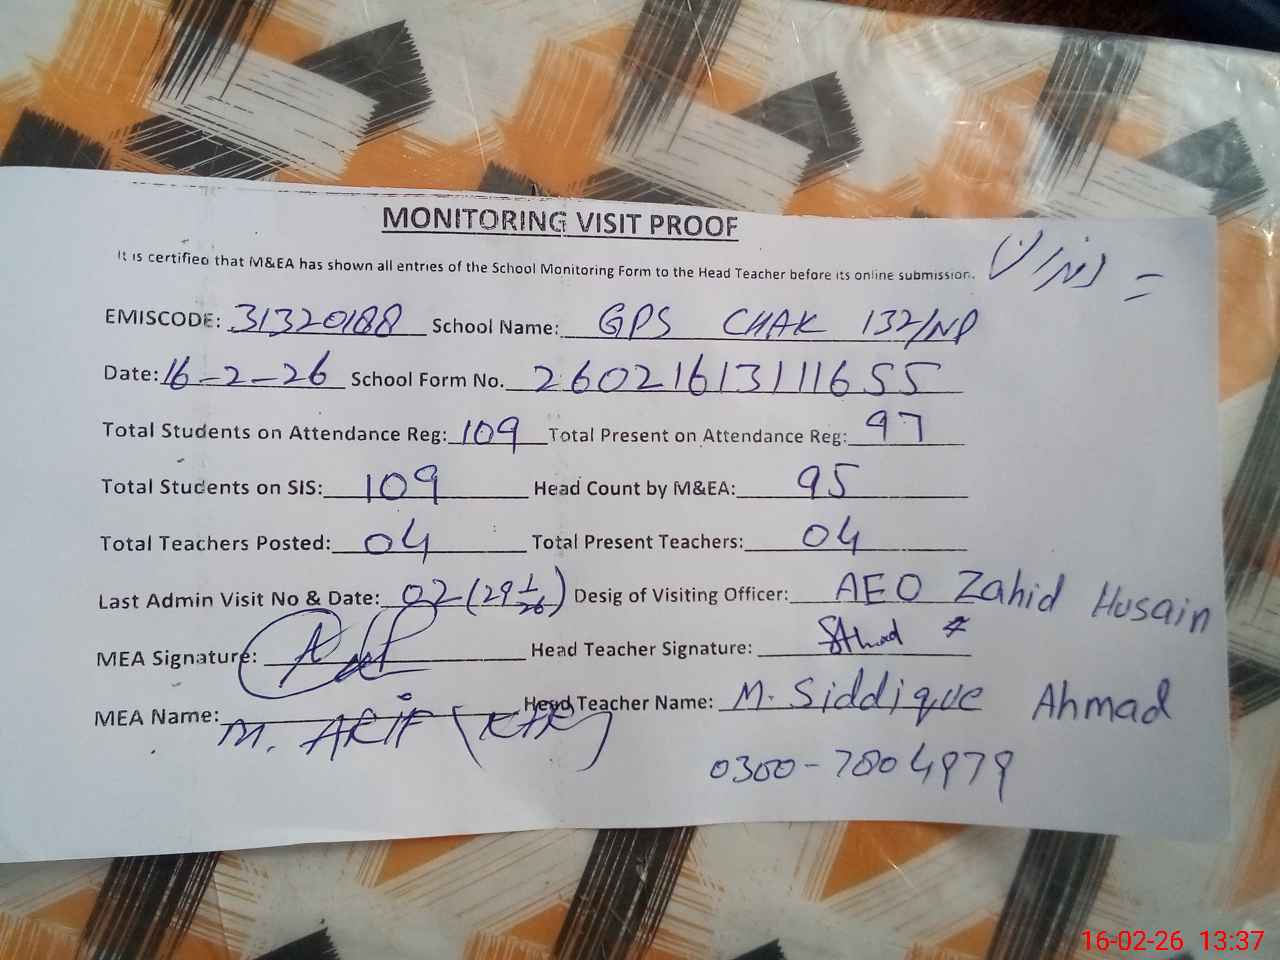 MONITORING VISIT PROOF
It is certified that M&EA has shown all entries of the School Monitoring Form to the Head Teacher before its online submission.
EMISCODE: 31320188 School Name: GPS CHAK 132/NP
Date: 16-2-26 School Form No. 26021613111655
Total Students on Attendance Reg: 109 Total Present on Attendance Reg: 97
Total Students on SIS: 109 Head Count by M&EA: 95
Total Teachers Posted: 04 Total Present Teachers: 04
Last Admin Visit No & Date: 02 (29 1/26) Desig of Visiting Officer: AEO Zahid Husain
MEA Signature: Head Teacher Signature:
MEA Name: M. ARIF Head Teacher Name: M. Siddique Ahmad
0300-7804979
16-02-26 13:37